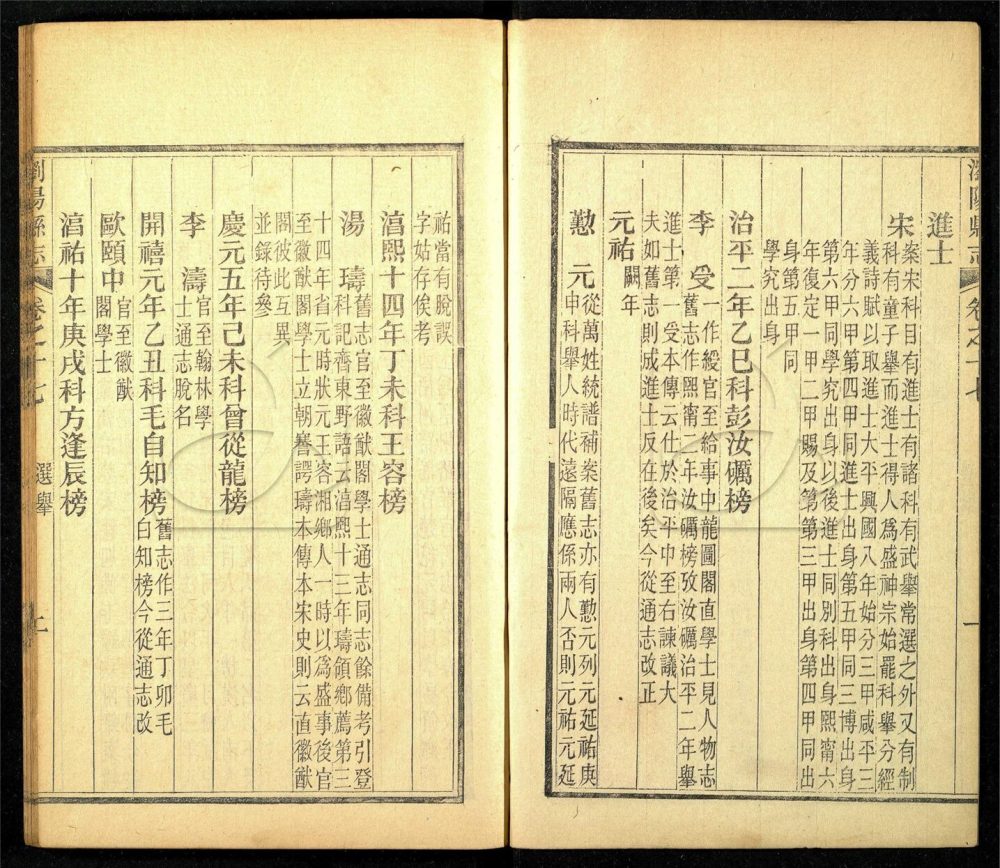 瀏陽縣志 卷之十七 一
進士
宋 案宋科目有進士有諸科有武舉常選之外又有制
科有童子舉而進士得人爲盛神宗始罷科舉分經
義詩賦以取進士大平興國八年始分三甲咸平三
年分六甲第四甲同進士出身第五甲同三博出身
第六甲同學究出身以後進士同別科出身熙甯六
年復定一甲二甲賜及第第三甲出身第四甲同出
身第五甲同
學究出身
治平二年乙巳科彭汝礪榜
李 受 一作綬官至給事中龍圖閣直學士見人物志
舊志作熙甯二年汝礪榜攷汝礪治平二年舉
進士第一受本傳云仕於治平中至右諫議大
夫如舊志則成進士反在後矣今從通志改正
元祐 闕年
懃 元 從萬姓統譜補案舊志亦有懃元列元延祐庚
申科舉人時代遠隔應係兩人否則元祐元延
祐當有脫誤
字姑存俟考
湻熙十四年丁未科王容榜
湯 璹 舊志官至徽猷閣學士通志同志餘備考引登
科記齊東野語云湻熙十三年璹領鄉薦第三
十四年省元時狀元王容湘鄉人一時以爲盛事後官
至徽猷閣學士立朝謇諤璹本傳本宋史則云直徽猷
閣彼此互異
並錄待參
慶元五年己未科曾從龍榜
李 濤 官至翰林學
士通志脫名
開禧元年乙丑科毛自知榜 舊志作三年丁卯毛
自知榜今從通志改
歐頤中 官至徽猷
閣學士
湻祐十年庚戌科方逢辰榜
劉陽縣志 卷之十七 選舉 二